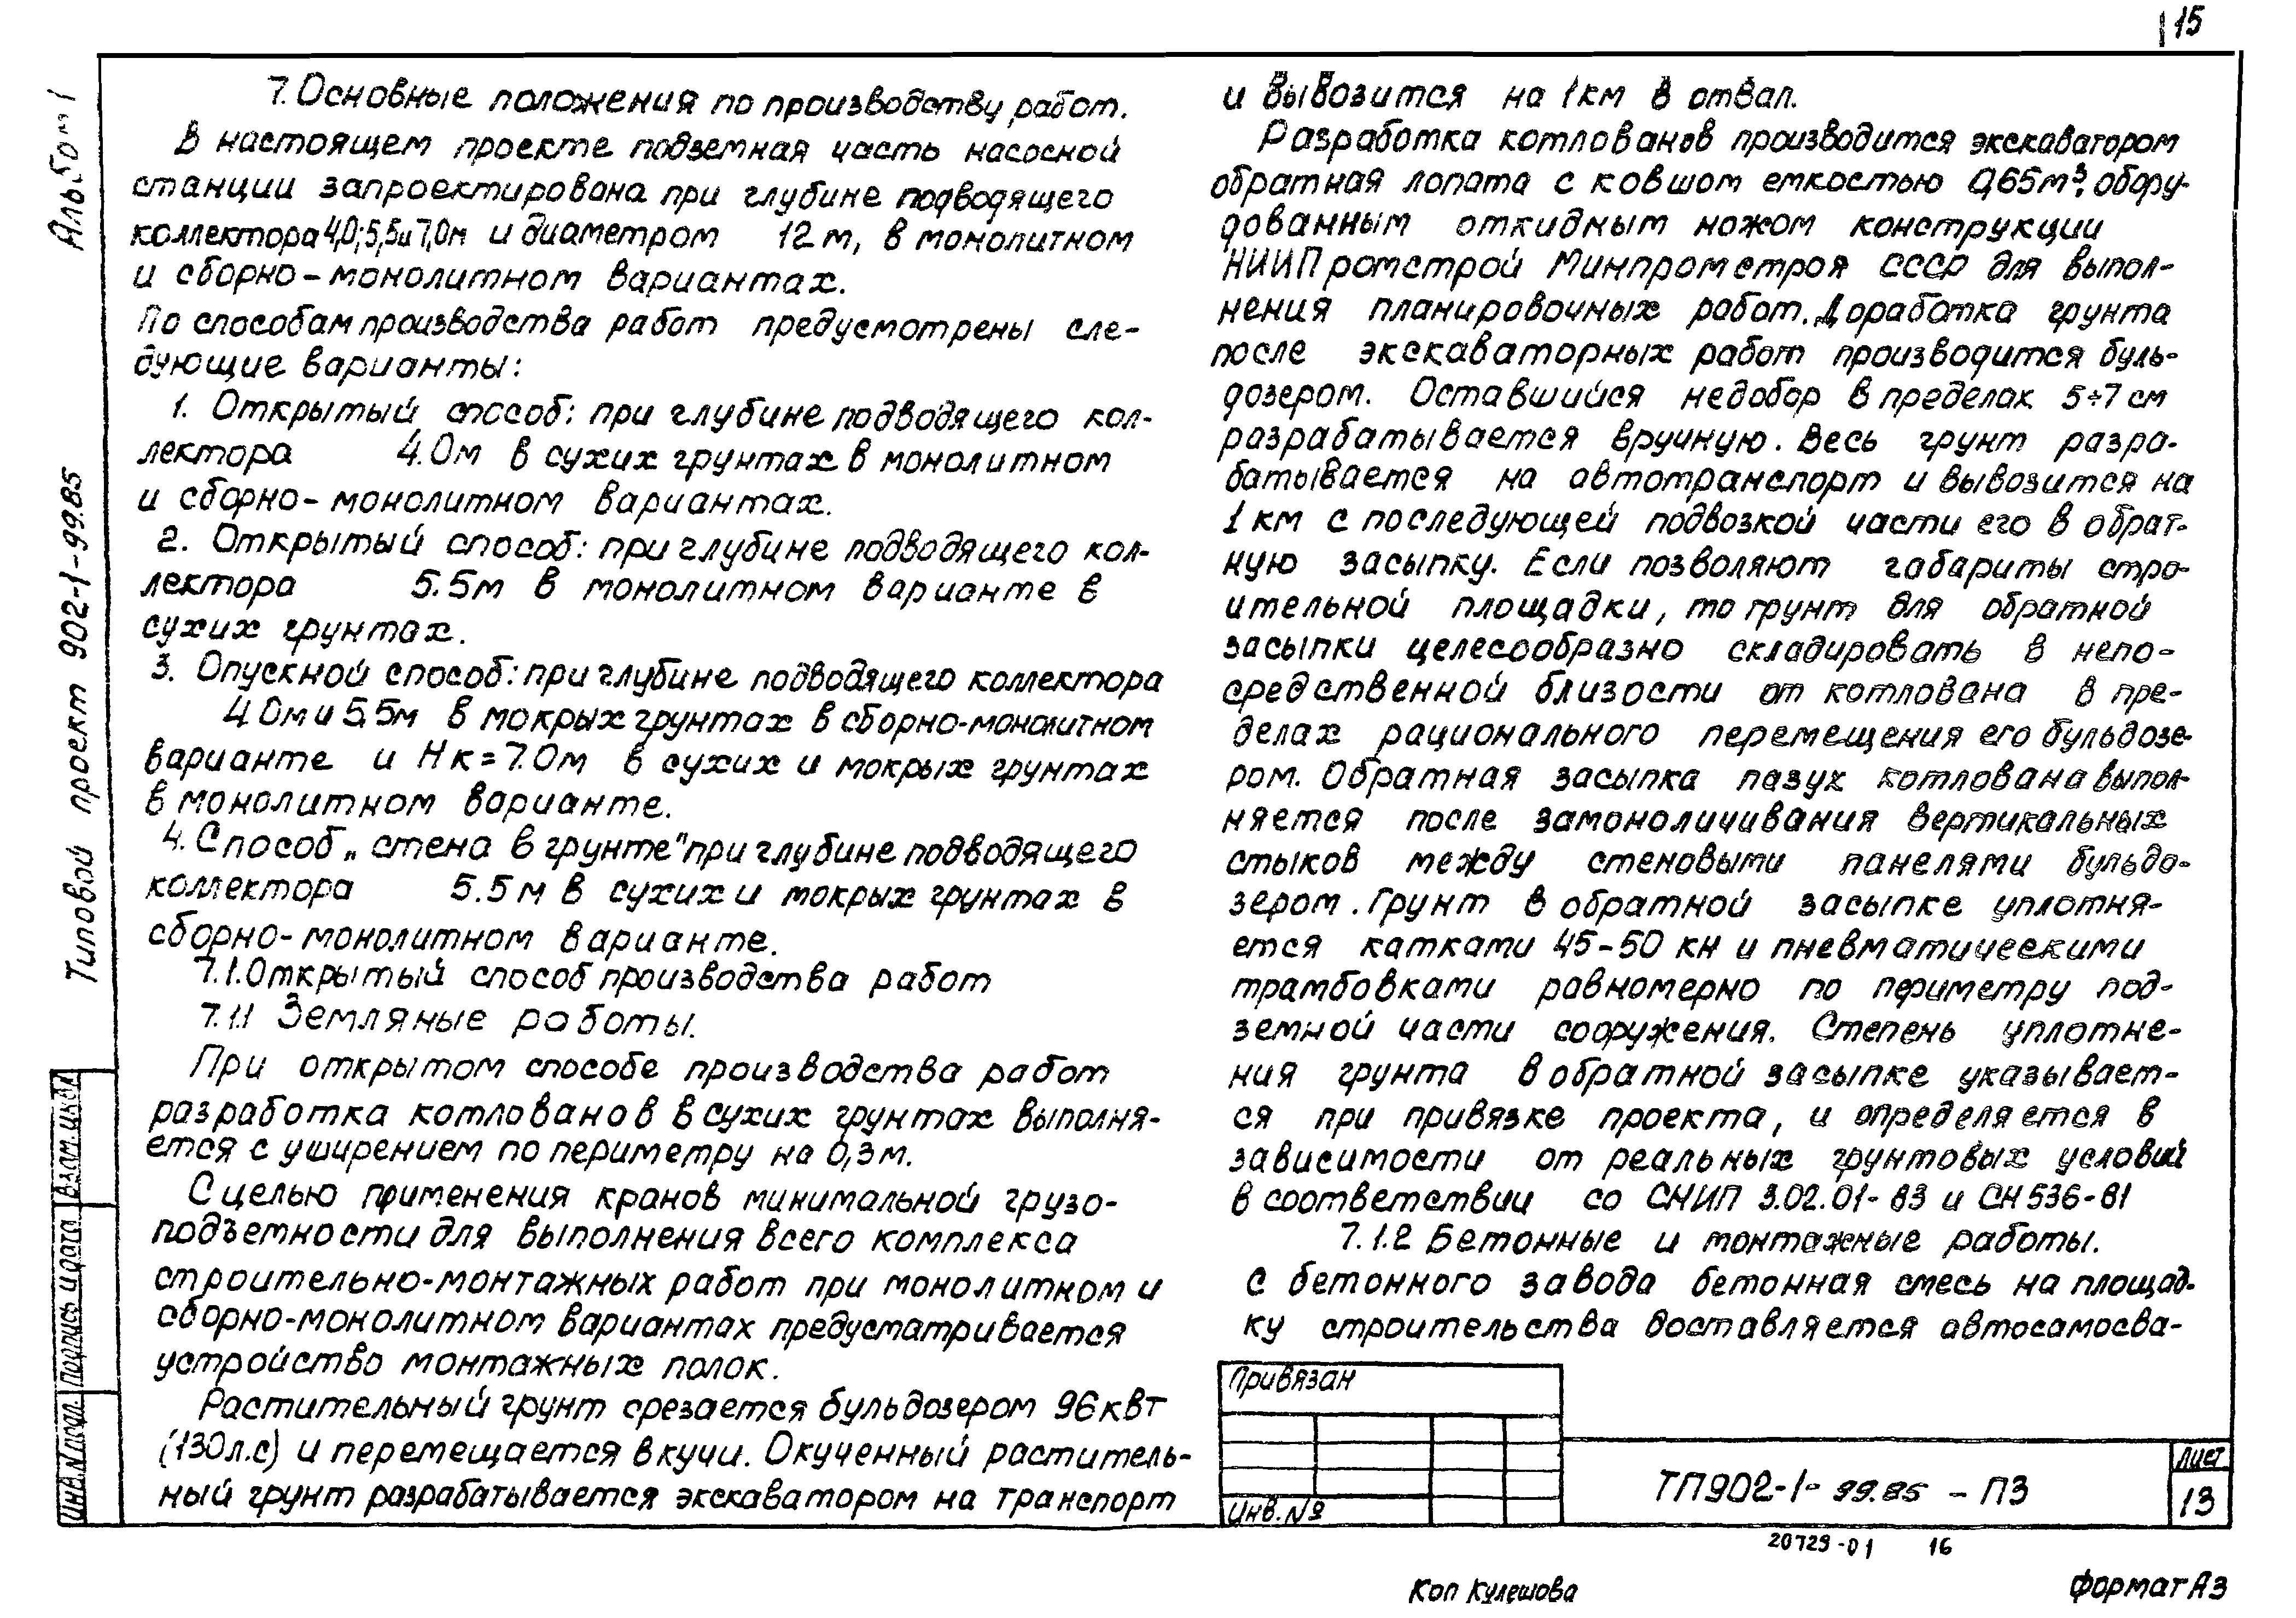 15
Альбом 1
Типовой проект 902-1-99.85
7. Основные положения по производству работ.
В настоящем проекте подземная часть насосной
станции запроектирована при глубине подводящего
коллектора 4,0; 5,5 и 7,0м и диаметром 12 м, в монолитном
и сборно-монолитном вариантах.
По способам производства работ предусмотрены сле-
дующие варианты:
1. Открытый способ: при глубине подводящего кол-
лектора 4.0м в сухих грунтах в монолитном
и сборно-монолитном вариантах.
2. Открытый способ: при глубине подводящего кол-
лектора 5.5м в монолитном варианте в
сухих грунтах.
3. Опускной способ: при глубине подводящего коллектора
4.0м и 5,5м в мокрых грунтах в сборно-монолитном
варианте и Нк=7.0м в сухих и мокрых грунтах
в монолитном варианте.
4. Способ „стена в грунте" при глубине подводящего
коллектора 5.5м в сухих и мокрых грунтах в
сборно-монолитном варианте.
7.1. Открытый способ производства работ
7.1.1 Земляные работы.
При открытом способе производства работ
разработка котлованов в сухих грунтах выполня-
ется с уширением по периметру на 0,3м.
С целью применения кранов минимальной грузо-
подъемности для выполнения всего комплекса
строительно-монтажных работ при монолитном и
сборно-монолитном вариантах предусматривается
устройство монтажных полок.
Растительный грунт срезается бульдозером 96 квт
(130л.с) и перемещается в кучи. Окученный раститель-
ный грунт разрабатывается экскаватором на транспорт
и вывозится на 1км в отвал.
Разработка котлованов производится экскаватором
обратная лопата с ковшом емкостью 0,65м³, обору-
дованным откидным ножом конструкции
НИИПромстрой Минпромстроя СССР для выпол-
нения планировочных работ. Доработка грунта
после экскаваторных работ производится буль-
дозером. Оставшийся недобор в пределах 5÷7 см
разрабатывается вручную. Весь грунт разра-
батывается на автотранспорт и вывозится на
1 км с последующей подвозкой части его в обрат-
ную засыпку. Если позволяют габариты стро-
ительной площадки, то грунт для обратной
засыпки целесообразно складировать в непо-
средственной близости от котлована в пре-
делах рационального перемещения его бульдозе-
ром. Обратная засыпка пазух котлована выпол-
няется после замоноличивания вертикальных
стыков между стеновыми панелями бульдо-
зером. Грунт в обратной засыпке уплотня-
ется катками 45-50 кн и пневматическими
трамбовками равномерно по периметру под-
земной части сооружения. Степень уплотне-
ния грунта в обратной засыпке указывает-
ся при привязке проекта, и определяется в
зависимости от реальных грунтовых условий
в соответствии со СНИП 3.02.01-83 и СН 536-81
7.1.2 Бетонные и монтажные работы.
С бетонного завода бетонная смесь на площад-
ку строительства доставляется автосамосва-
Взам.инв.№
Подпись и дата
Инв.№подл.
Привязан
Инв.№
ТП902-1-99.85 - ПЗ
Лист
13
20729-01 16
Коп Кулешова
Формат А3